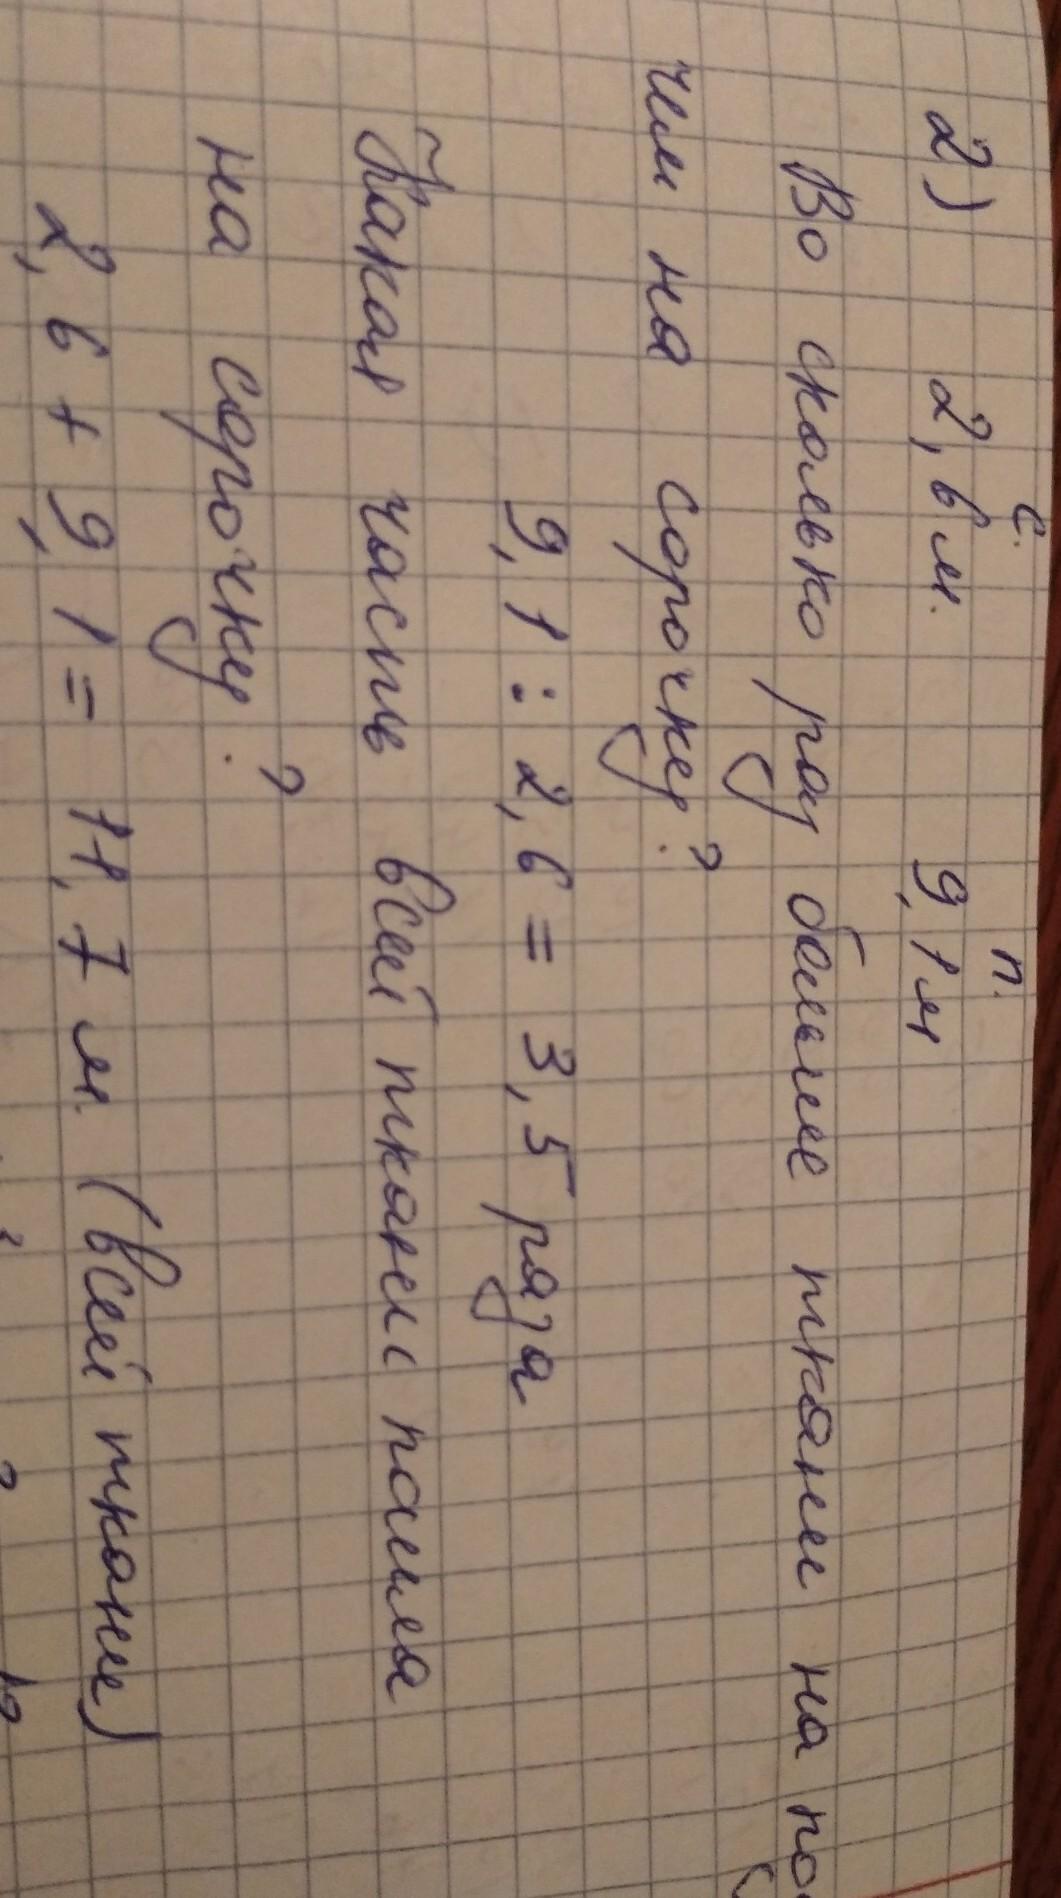 с. п.
2) 2,6 м. 9,1 м
Во сколько раз больше ткани на
чем на сорочку?
9,1 : 2,6 = 3,5 раза
Какая часть всей ткани пошла
на сорочку?
2,6 + 9,1 = 11,7 м. (всей ткани)